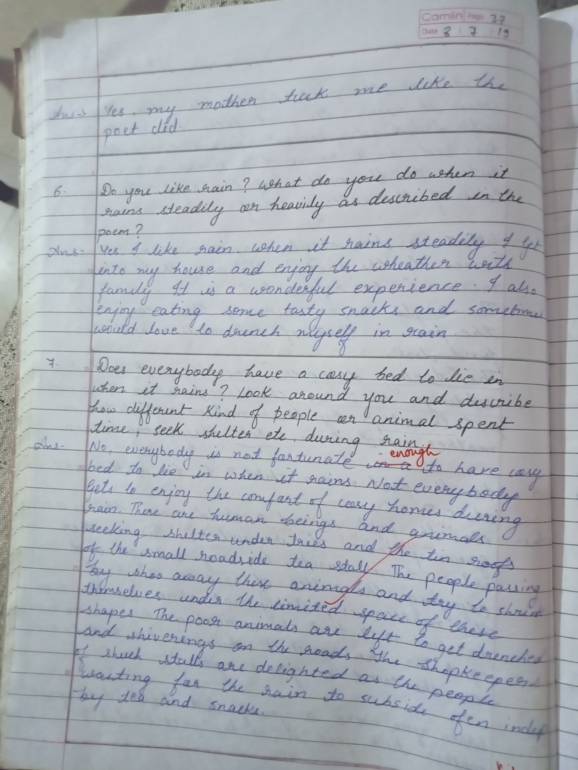 Camlin Page 37
Date 8 7 19
Ans- Yes, my mother tuck me like the
poet did.
6. Do you like rain? What do you do when it
rains steadily or heavily as described in the
poem?
Ans- Yes I like rain. when it rains steadily I get
into my house and enjoy the wheather with
family It is a wonderful experience. I also
enjoy eating some tasty snacks and sometime
would love to drench myself in rain
7. Does everybody have a cosy bed to lie in
when it rains? Look around you and describe
how different kind of people or animal spent
time, seek shelter etc, during rain.
enough
Ans- No, everybody is not fortunate in a to have cosy
bed to lie in when it rains Not everybody
gets to enjoy the comfort of cosy homes during
rain. There are human beings and animals
seeking shelter under trees and the tin roofs
of the small roadside tea stall. The people passing
by shoo away these animals and try to shrink
themselves under the limited space of these
shapes The poor animals are left to get drenched
and shiverings on the roads The Shopkeepers
of shuch stalls are delighted as the people
waiting for the rain to subside ofen
by tea and snacks.